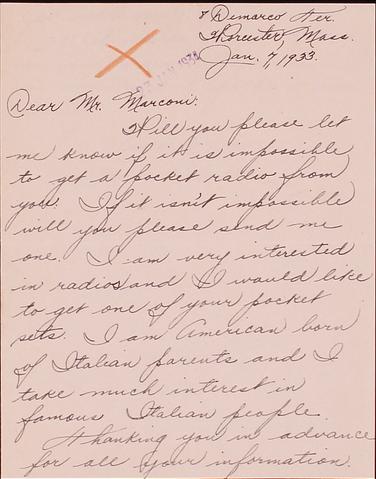 8 Demarco Ter.
Worcester, Mass.
Jan. 7, 1933.
27 JAN 1934
Dear Mr. Marconi:
Will you please let
me know if it is impossible
to get a pocket radio from
you. If it isn't impossible
will you please send me
one. I am very interested
in radios and I would like
to get one of your pocket
sets. I am American born
of Italian parents and I
take much interest in
famous Italian people.
Thanking you in advance
for all your information.